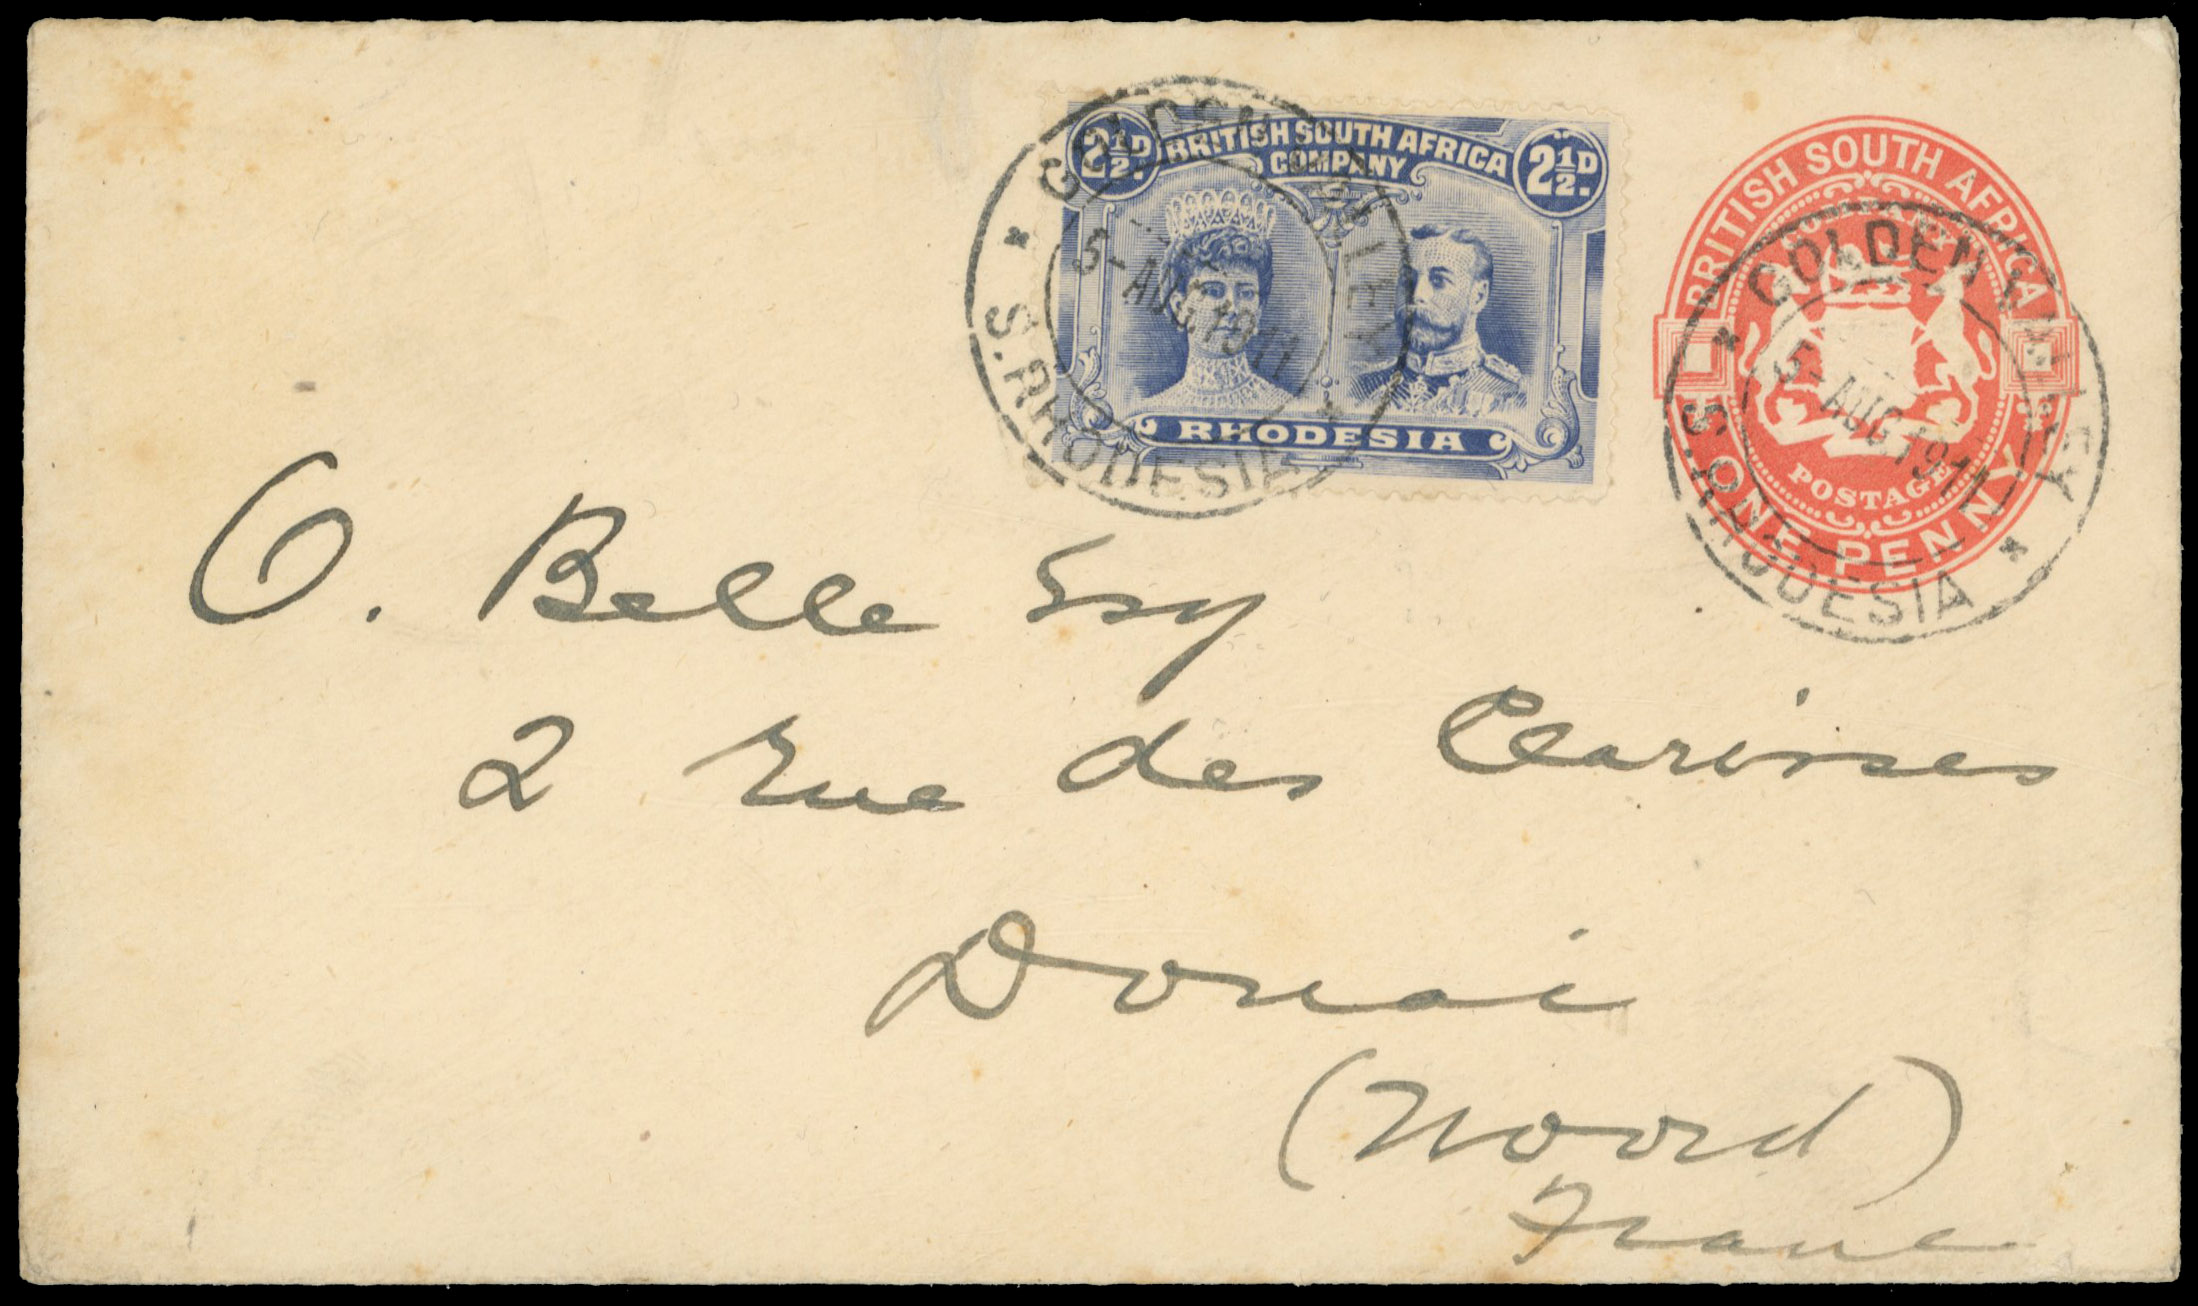 2½D. BRITISH SOUTH AFRICA 2½D.
COMPANY
RHODESIA
GOLDEN VALLEY
5-AUG.1911
S.RHODESIA
BRITISH SOUTH AFRICA
COMPANY
POSTAGE
ONE PENNY
GOLDEN VALLEY
5-AUG.1911
S.RHODESIA
O. Belle Esq
2 Rue des Clarisses
Douai
(Noord)
France